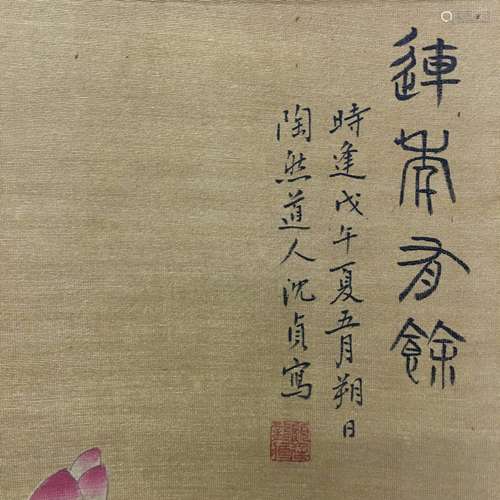 連年有餘
時逢戊午夏五月朔日
陶然道人沈貞寫